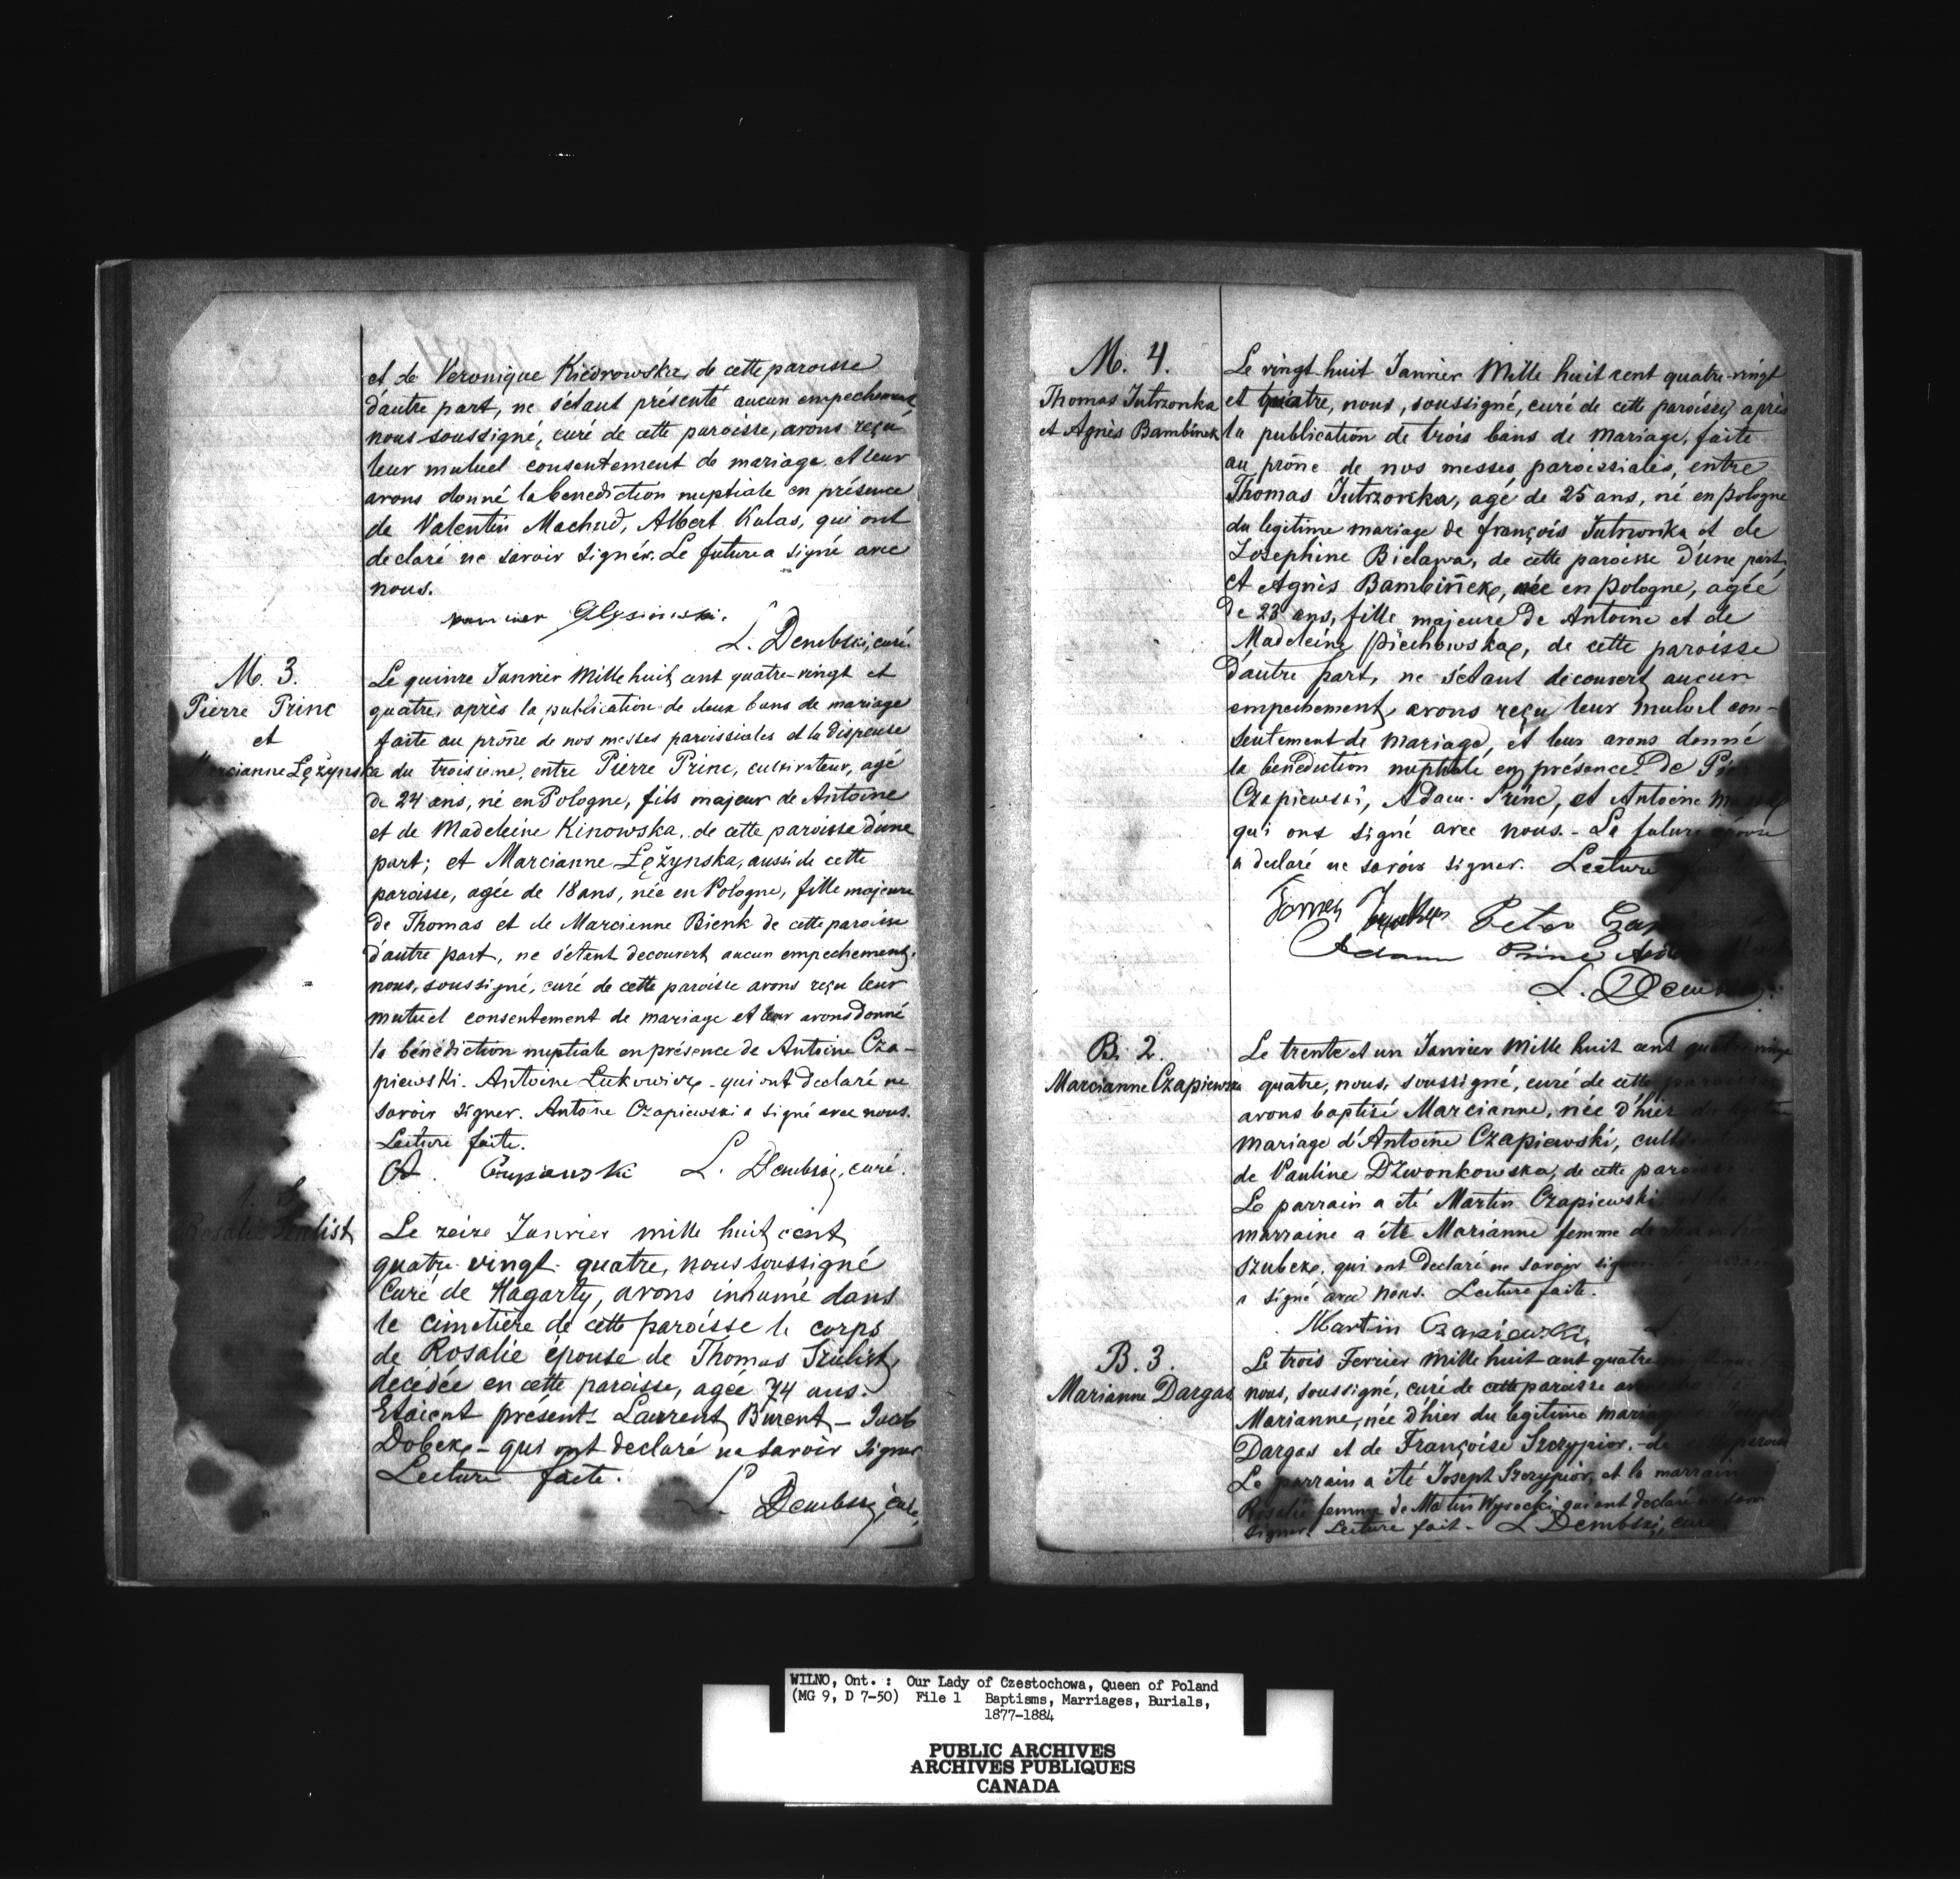 et de Veronique Kiedrowska, de cette paroisse
d'autre part, ne s'étant présenté aucun empechement
nous soussigné, curé de cette paroisse, avons reçu
leur mutuel consentement de mariage et leur
avons donné la benediction nuptiale en présence
de Valentin Machud, Albert Kulas, qui ont
declaré ne savoir signer. Le future a signé avec
nous.
L. Dembski, curé.
M. 3.
Pierre Princ
et
Marcianne Lężynska
Le quinze Janvier Mille huit cent quatre-vingt et
quatre, après la publication de deux bans de mariage
faite au prône de nos messes paroissiales et la dispense
du troisieme, entre Pierre Princ, cultivateur, agé
de 24 ans, né en Pologne, fils majeur de Antoine
et de Madeleine Kinowska, de cette paroisse d'une
part; et Marcianne Lężynska, aussi de cette
paroisse, agée de 18 ans, née en Pologne, fille majeure
de Thomas et de Marcianne Bienk de cette paroisse
d'autre part, ne s'étant decouvert aucun empechement,
nous, soussigné, curé de cette paroisse avons reçu leur
mutuel consentement de mariage et leur avons donné
la bénédiction nuptiale en présence de Antoine Cza-
piewski. Antoine Lukowicz - qui ont declaré ne
savoir signer. Antoine Czapiewski a signé avec nous.
Lecture faite.
L. Dembski, curé.
Rosalie Szulist
Le zeize Janvier mille huit cent
quatre vingt quatre, nous soussigné
Curé de Hagarty, avons inhumé dans
le cimetière de cette paroisse le corps
de Rosalie épouse de Thomas Szulist,
décédée en cette paroisse, agée 74 ans.
Etaient présent Laurent Burent - Jacob
Dobek - qui ont declaré ne savoir signer
Lecture faite.
L. Dembski, curé,
M. 4.
Thomas Jutrzonka
et Agnès Bambinek
Le vingt-huit Janvier Mille huit cent quatre-vingt
et quatre, nous, soussigné, curé de cette paroisse, après
la publication de trois bans de mariage, faite
au prône de nos messes paroissiales, entre
Thomas Jutrzonka, agé de 25 ans, né en pologne
du legitime mariage de françois Jutrzonka et de
Josephine Bielawa, de cette paroisse d'une part,
et Agnès Bambinek, née en pologne, agée
de 23 ans, fille majeure de Antoine et de
Madeleine Piechowska, de cette paroisse
d'autre part, ne s'étant decouvert aucun
empechement, avons reçu leur mutuel con-
sentement de mariage, et leur avons donné
la bénédiction nuptiale en présence de
Czapiewski, Adam Princ, et Antoine
qui ont signé avec nous. - La future épouse
a declaré ne savoir signer. Lecture
Peter
Adam Princ
L. Dembski
B. 2.
Marcianne Czapiewska
Le trente et un Janvier Mille huit cent quatre-vingt
quatre, nous, soussigné, curé de cette paroisse
avons baptisé Marcianne, née d'hier du legitime
mariage d'Antoine Czapiewski,
de Pauline Dzwonkowska, de cette paroisse
Le parrain a été Martin Czapiewski et la
marraine a été Marianne femme de
Szubek, qui ont declaré ne savoir signer
a signé avec nous. Lecture faite.
Martin Czapiewski, L.
B. 3.
Marianne Dargas
Le trois Fevrier Mille huit cent quatre
nous, soussigné, curé de cette paroisse avons
Marianne, née d'hier du legitime mariage
Dargas et de Françoise Szczypior. - de paroisse
Le parrain a été Joseph Szczypior, et la marraine
Rosalie femme de Martin Wysocki, qui ont declaré ne savoir
signer. Lecture fait - L Dembski, curé
WILNO, Ont. : Our Lady of Czestochowa, Queen of Poland
(MG 9, D 7-50) File 1 Baptisms, Marriages, Burials,
1877-1884
PUBLIC ARCHIVES
ARCHIVES PUBLIQUES
CANADA